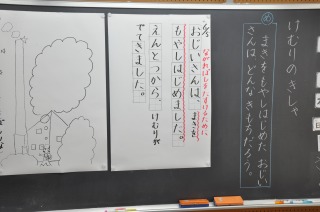 けむりのきしゃ
め
まきをもやしはじめた おじい
さんは どんな きもちだろう。
ながれぼしをたすけるために
おじいさんは、まきを
もやしはじめました。
えんとつから、けむりが
でてきました。